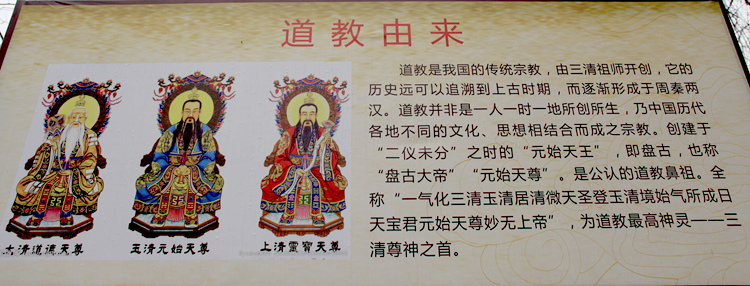 道教由来
道教是我国的传统宗教，由三清祖师开创，它的
历史远可以追溯到上古时期，而逐渐形成于周秦两
汉。道教并非是一人一时一地所创所生，乃中国历代
各地不同的文化、思想相结合而成之宗教。创建于
“二仪未分”之时的“元始天王”，即盘古，也称
“盘古大帝”“元始天尊”。是公认的道教鼻祖。全
称“一气化三清玉清居清微天圣登玉清境始气所成日
天宝君元始天尊妙无上帝”，为道教最高神灵——三
清尊神之首。
太清道德天尊
玉清元始天尊
上清靈寶天尊